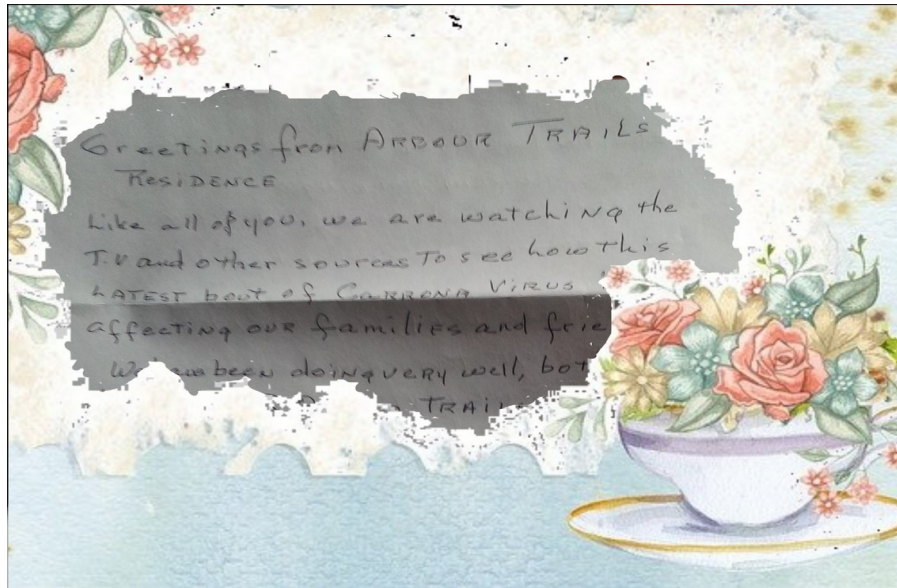 Greetings from ARBOUR TRAILS
RESIDENCE
Like all of you, we are watching the
T.V and other sources To see how this
LATEST bout of CARRONA VIRUS
affecting our families and
We been doing very well,